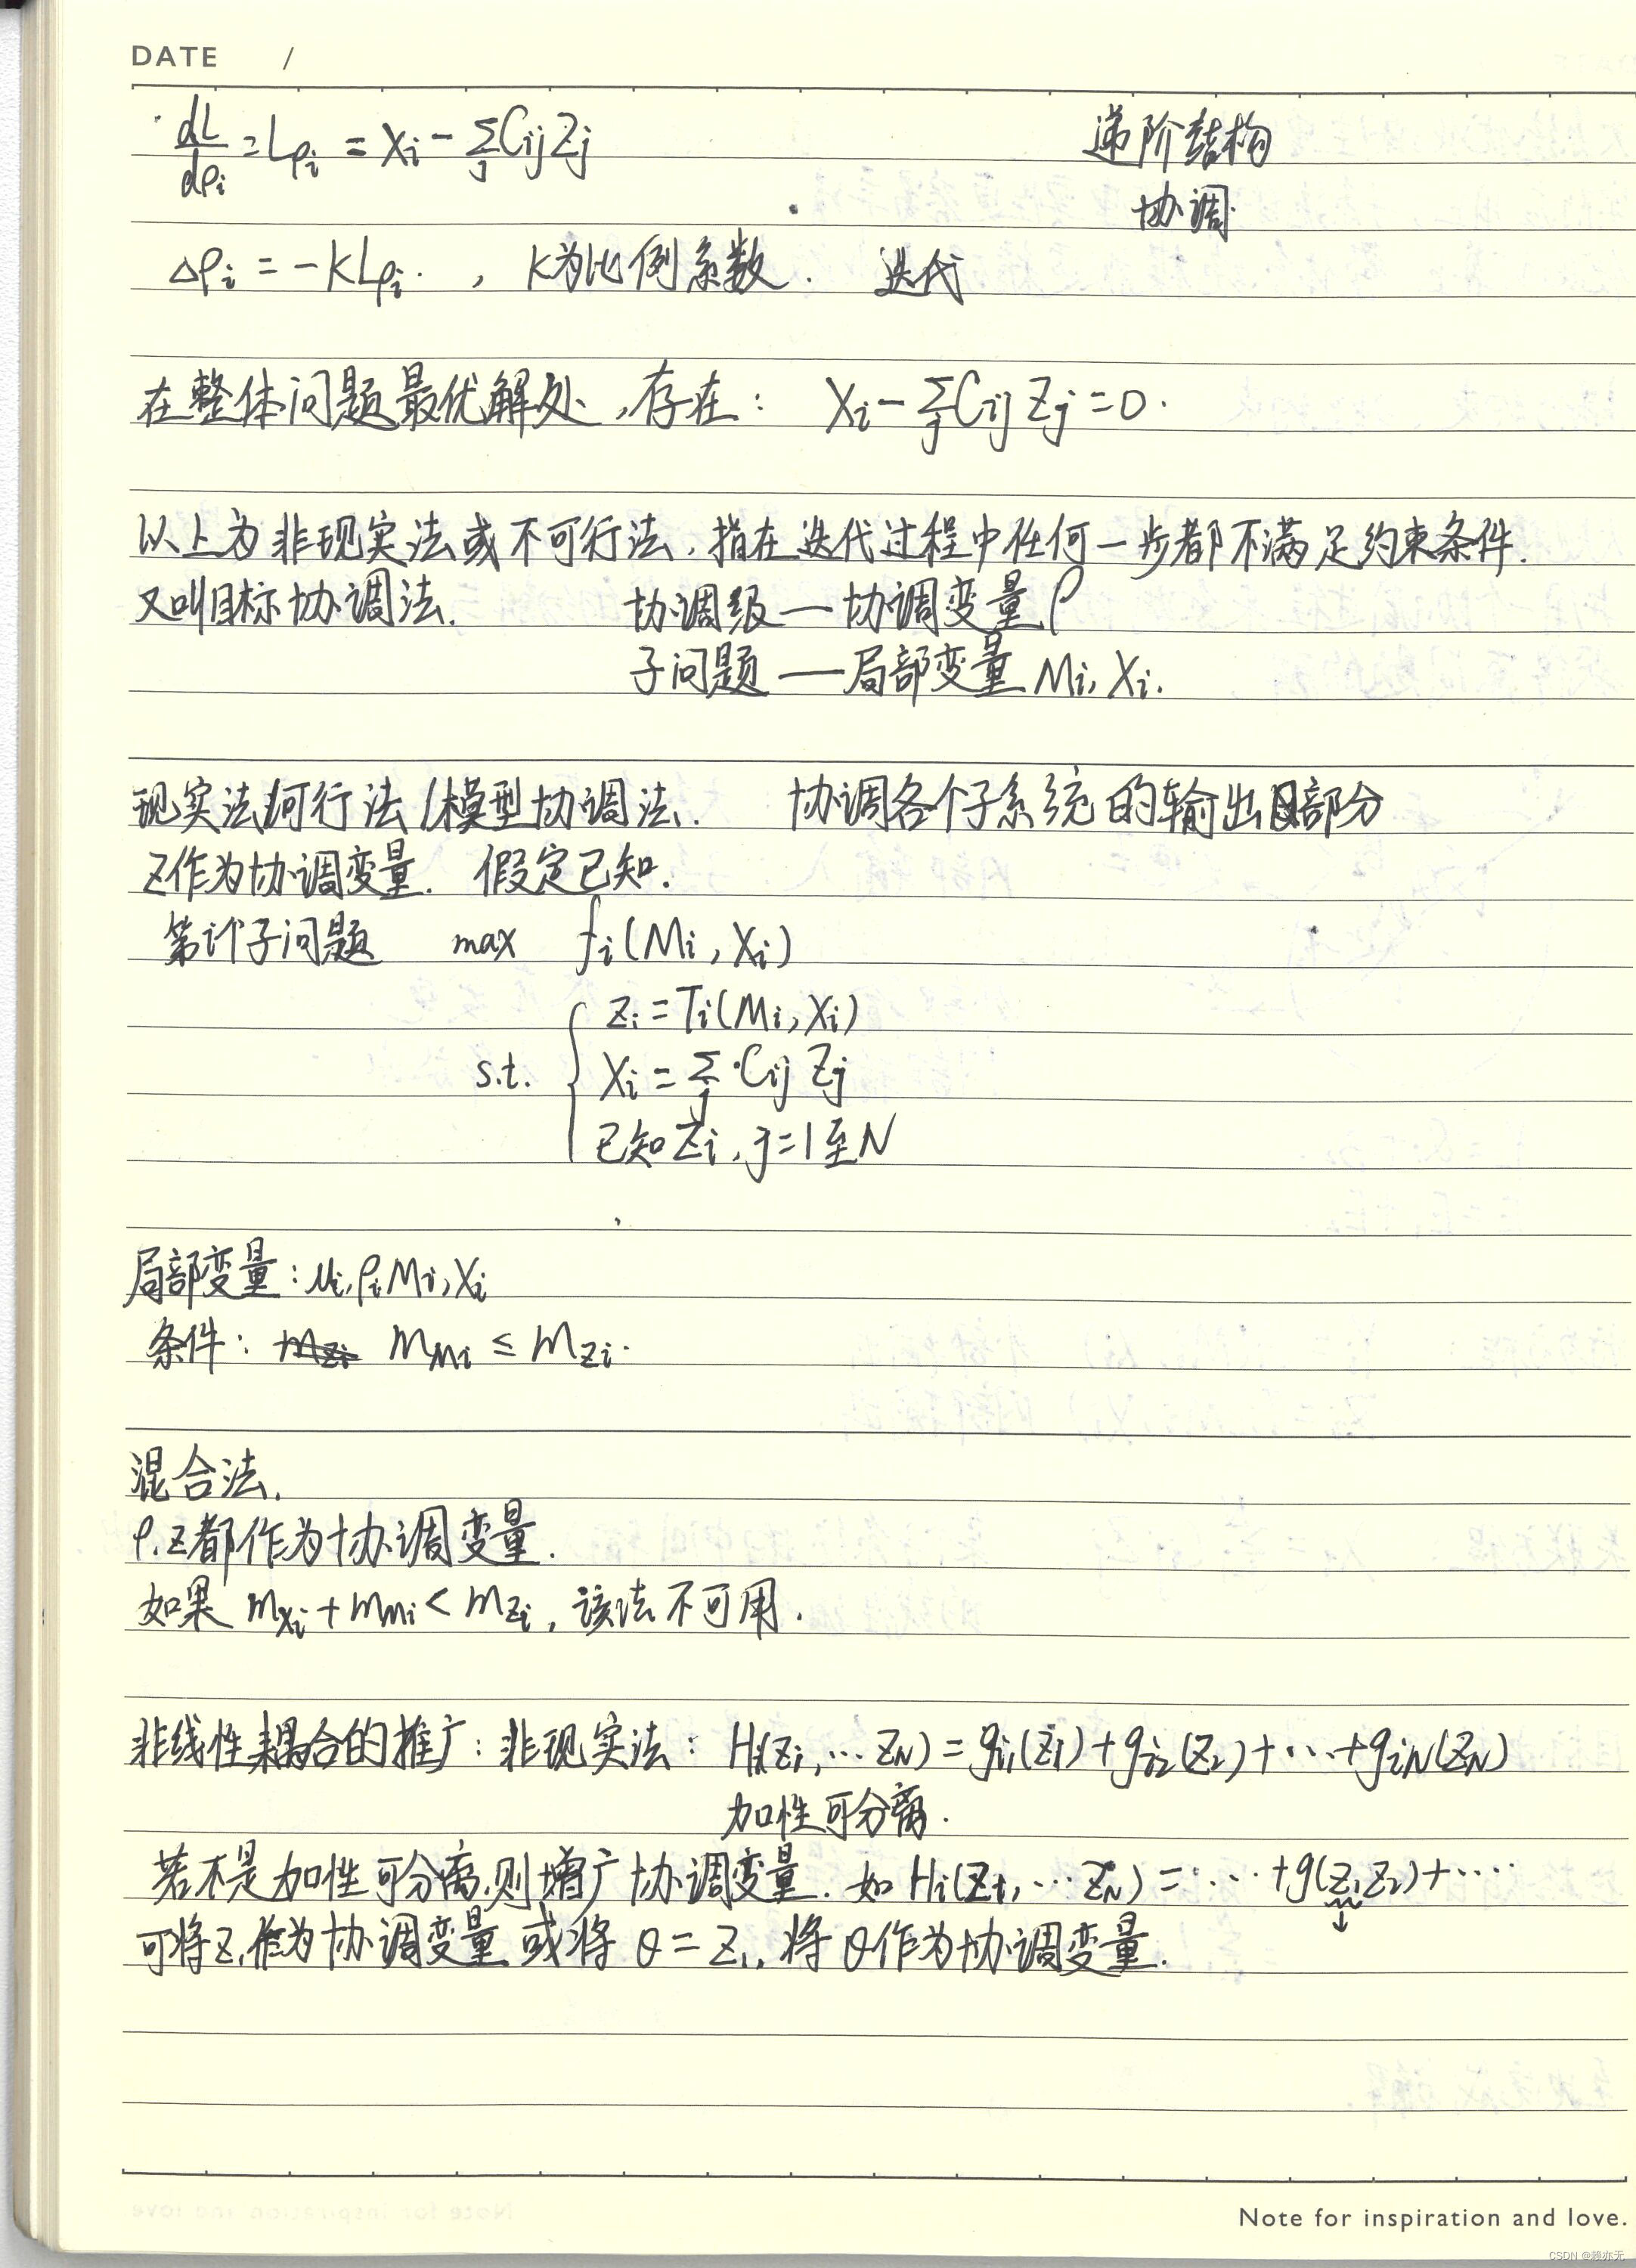 DATE /
dL/dρi = Lρi = Xi - Σj Cij Zj 递阶结构
协调
Δρi = -KLρi. , K为比例系数. 迭代
在整体问题最优解处,存在: Xi - Σj Cij Zj = 0.
以上为非现实法或不可行法,指在迭代过程中任何一步都不满足约束条件.
又叫目标协调法. 协调级—协调变量ρ
子问题—局部变量Mi, Xi.
现实法/可行法/模型协调法. 协调各个子系统的输出部分
Z作为协调变量. 假定已知.
第i个子问题 max fi(Mi, Xi)
Zi = Ti(Mi, Xi)
s.t. Xi = Σj Cij Zj
已知Zi, j=1至N
局部变量: μi, ρi Mi, Xi
条件: mZi mMi ≤ mZi.
混合法.
ρ.Z都作为协调变量.
如果 mXi + mMi < mZi, 该法不可用.
非线性耦合的推广: 非现实法: Hi(Zi, … ZN) = gi1(Z1) + gi2(Z2) + … + giN(ZN)
加性可分离.
若不是加性可分离,则增广协调变量. 如 Hi(Z1, … ZN) = … + g(Z1Z2) + …
↓
可将Z1作为协调变量 或将 θ = Z1, 将θ作为协调变量.
Note for inspiration and love.
CSDN @赖亦无